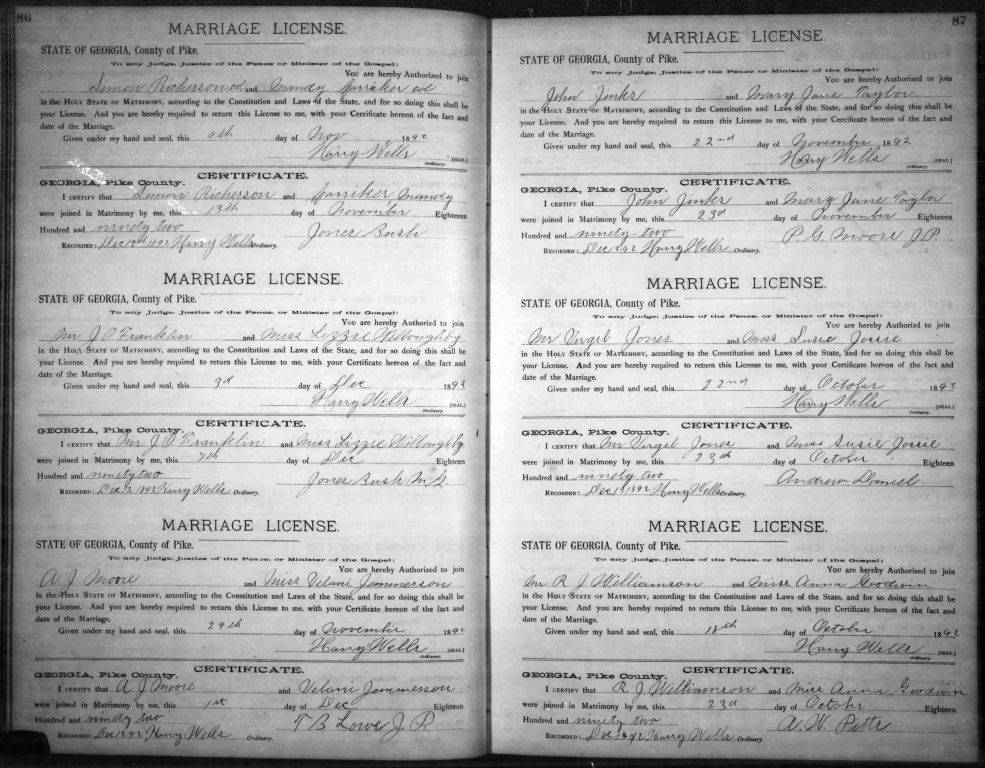 86
MARRIAGE LICENSE.
STATE OF GEORGIA, County of Pike.
To any Judge, Justice of the Peace or Minister of the Gospel:
You are hereby Authorized to join
Simon Richerson col and Mandy Farriker col
in the Holy State of Matrimony, according to the Constitution and Laws of the State, and for so doing this shall be
your License. And you are hereby required to return this License to me, with your Certificate hereon of the fact and
date of the Marriage.
Given under my hand and seal, this 9th day of Nov 1892
Harry Wells [SEAL]
Ordinary.
CERTIFICATE.
GEORGIA, Pike County.
I certify that Simon Richerson and Farriker Mandy
were joined in Matrimony by me, this 13th day of November Eighteen
Hundred and ninety two Jones Bush
Recorded: Dec 1892 Harry Wells Ordinary.
MARRIAGE LICENSE.
STATE OF GEORGIA, County of Pike.
To any Judge, Justice of the Peace, or Minister of the Gospel:
You are hereby Authorized to join
Mr J O Franklin and Miss Lizzie Willoughby
in the Holy State of Matrimony, according to the Constitution and Laws of the State, and for so doing this shall be
your License. And you are hereby required to return this License to me, with your Certificate hereon of the fact and
date of the Marriage.
Given under my hand and seal, this 3d day of Dec 1892
Harry Wells [SEAL]
Ordinary.
CERTIFICATE.
GEORGIA, Pike County.
I certify that Mr J O Franklin and Miss Lizzie Willoughby
were joined in Matrimony by me, this 7th day of Dec Eighteen
Hundred and ninety two Jones Bush M.G.
Recorded: Dec 12 1892 Harry Wells Ordinary.
MARRIAGE LICENSE.
STATE OF GEORGIA, County of Pike.
To any Judge, Justice of the Peace, or Minister of the Gospel:
You are hereby Authorized to join
A J Moore and Miss Velani Jemmerson
in the Holy State of Matrimony, according to the Constitution and Laws of the State, and for so doing this shall be
your License. And you are hereby required to return this License to me, with your Certificate hereon of the fact and
date of the Marriage.
Given under my hand and seal, this 29th day of November 1892
Harry Wells [SEAL]
Ordinary.
CERTIFICATE.
GEORGIA, Pike County.
I certify that A J Moore and Velani Jemmerson
were joined in Matrimony by me, this 1st day of Dec Eighteen
Hundred and ninety two T B Lowe J P
Recorded: Dec 12 92 Harry Wells Ordinary.
87
MARRIAGE LICENSE.
STATE OF GEORGIA, County of Pike.
To any Judge, Justice of the Peace or Minister of the Gospel:
You are hereby Authorized to join
John Jinks and Mary Jane Taylor
in the Holy State of Matrimony, according to the Constitution and Laws of the State, and for so doing this shall be
your License. And you are hereby required to return this License to me, with your Certificate hereon of the fact and
date of the Marriage.
Given under my hand and seal, this 22nd day of November 1892
Harry Wells [SEAL]
Ordinary.
CERTIFICATE.
GEORGIA, Pike County.
I certify that John Jinks and Mary Jane Taylor
were joined in Matrimony by me, this 23d day of November Eighteen
Hundred and ninety two P. G. Moore J.P.
Recorded: Dec 92 Harry Wells Ordinary.
MARRIAGE LICENSE.
STATE OF GEORGIA, County of Pike.
To any Judge, Justice of the Peace, or Minister of the Gospel:
You are hereby Authorized to join
Mr Virgil Jones and Miss Susie Jossie
in the Holy State of Matrimony, according to the Constitution and Laws of the State, and for so doing this shall be
your License. And you are hereby required to return this License to me, with your Certificate hereon of the fact and
date of the Marriage.
Given under my hand and seal, this 22nd day of October 1892
Harry Wells [SEAL]
Ordinary.
CERTIFICATE.
GEORGIA, Pike County.
I certify that Mr Virgil Jones and Miss Susie Jossie
were joined in Matrimony by me, this 23d day of October Eighteen
Hundred and ninety two Andrew Daniel
Recorded: Dec 1892 Harry Wells Ordinary.
MARRIAGE LICENSE.
STATE OF GEORGIA, County of Pike.
To any Judge, Justice of the Peace, or Minister of the Gospel:
You are hereby Authorized to join
Mr R J Williamson and Miss Anna Goodwin
in the Holy State of Matrimony, according to the Constitution and Laws of the State, and for so doing this shall be
your License. And you are hereby required to return this License to me, with your Certificate hereon of the fact and
date of the Marriage.
Given under my hand and seal, this 18th day of October 1892
Harry Wells [SEAL]
Ordinary.
CERTIFICATE.
GEORGIA, Pike County.
I certify that R. J. Williamson and Miss Anna Goodwin
were joined in Matrimony by me, this 23d day of October Eighteen
Hundred and ninety two A. W. Pitts
Recorded: Dec 92 Harry Wells Ordinary.